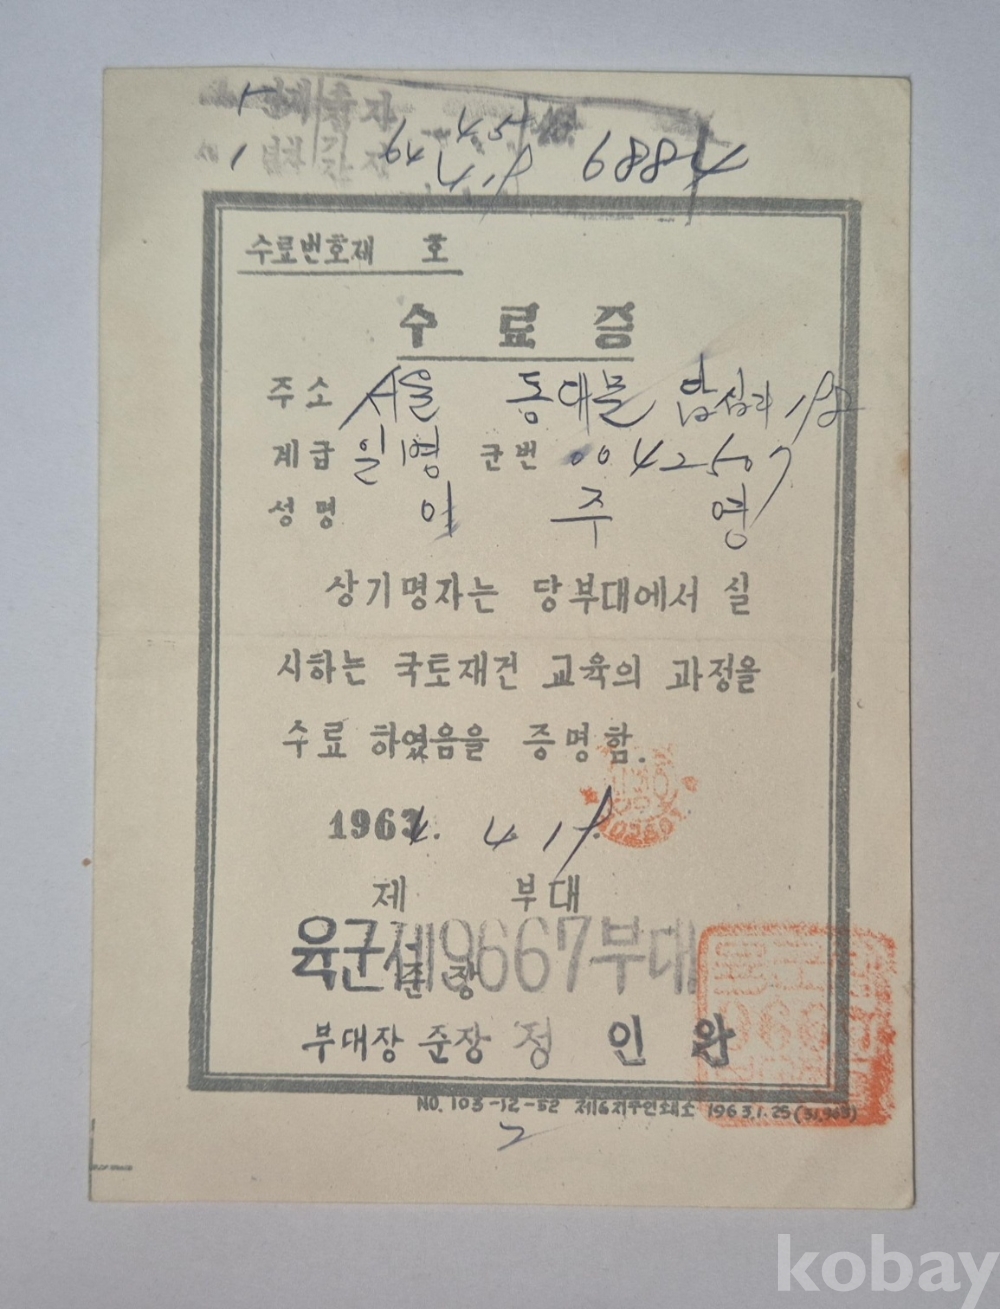 출자
64 4.19 6884
수료번호제 호
수 료 증
주소 서울 동대문 답십리 192
계급 일병 군번 0042507
성명 이 주 영
상기명자는 당부대에서 실
시하는 국토재건 교육의 과정을
수료 하였음을 증명함.
1964. 4. 19.
제 부대
육군제9667부대
준장
부대장 준장 정 인 완
NO. 103-12-52 제16지구인쇄소 1963.1.25
kobay